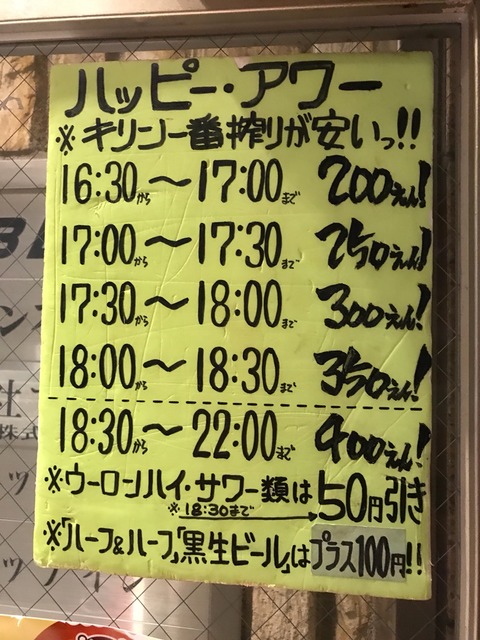 ハッピー・アワー
※キリン一番搾りが安いっ!!
16:30から〜17:00まで 200えん!
17:00から〜17:30まで 250えん!
17:30から〜18:00まで 300えん!
18:00から〜18:30まで 350えん!
18:30から〜22:00まで 400えん!
※ウーロンハイ・サワー類は50円引き
※18:30まで
※「ハーフ&ハーフ」「黒生ビール」はプラス100円!!
株式